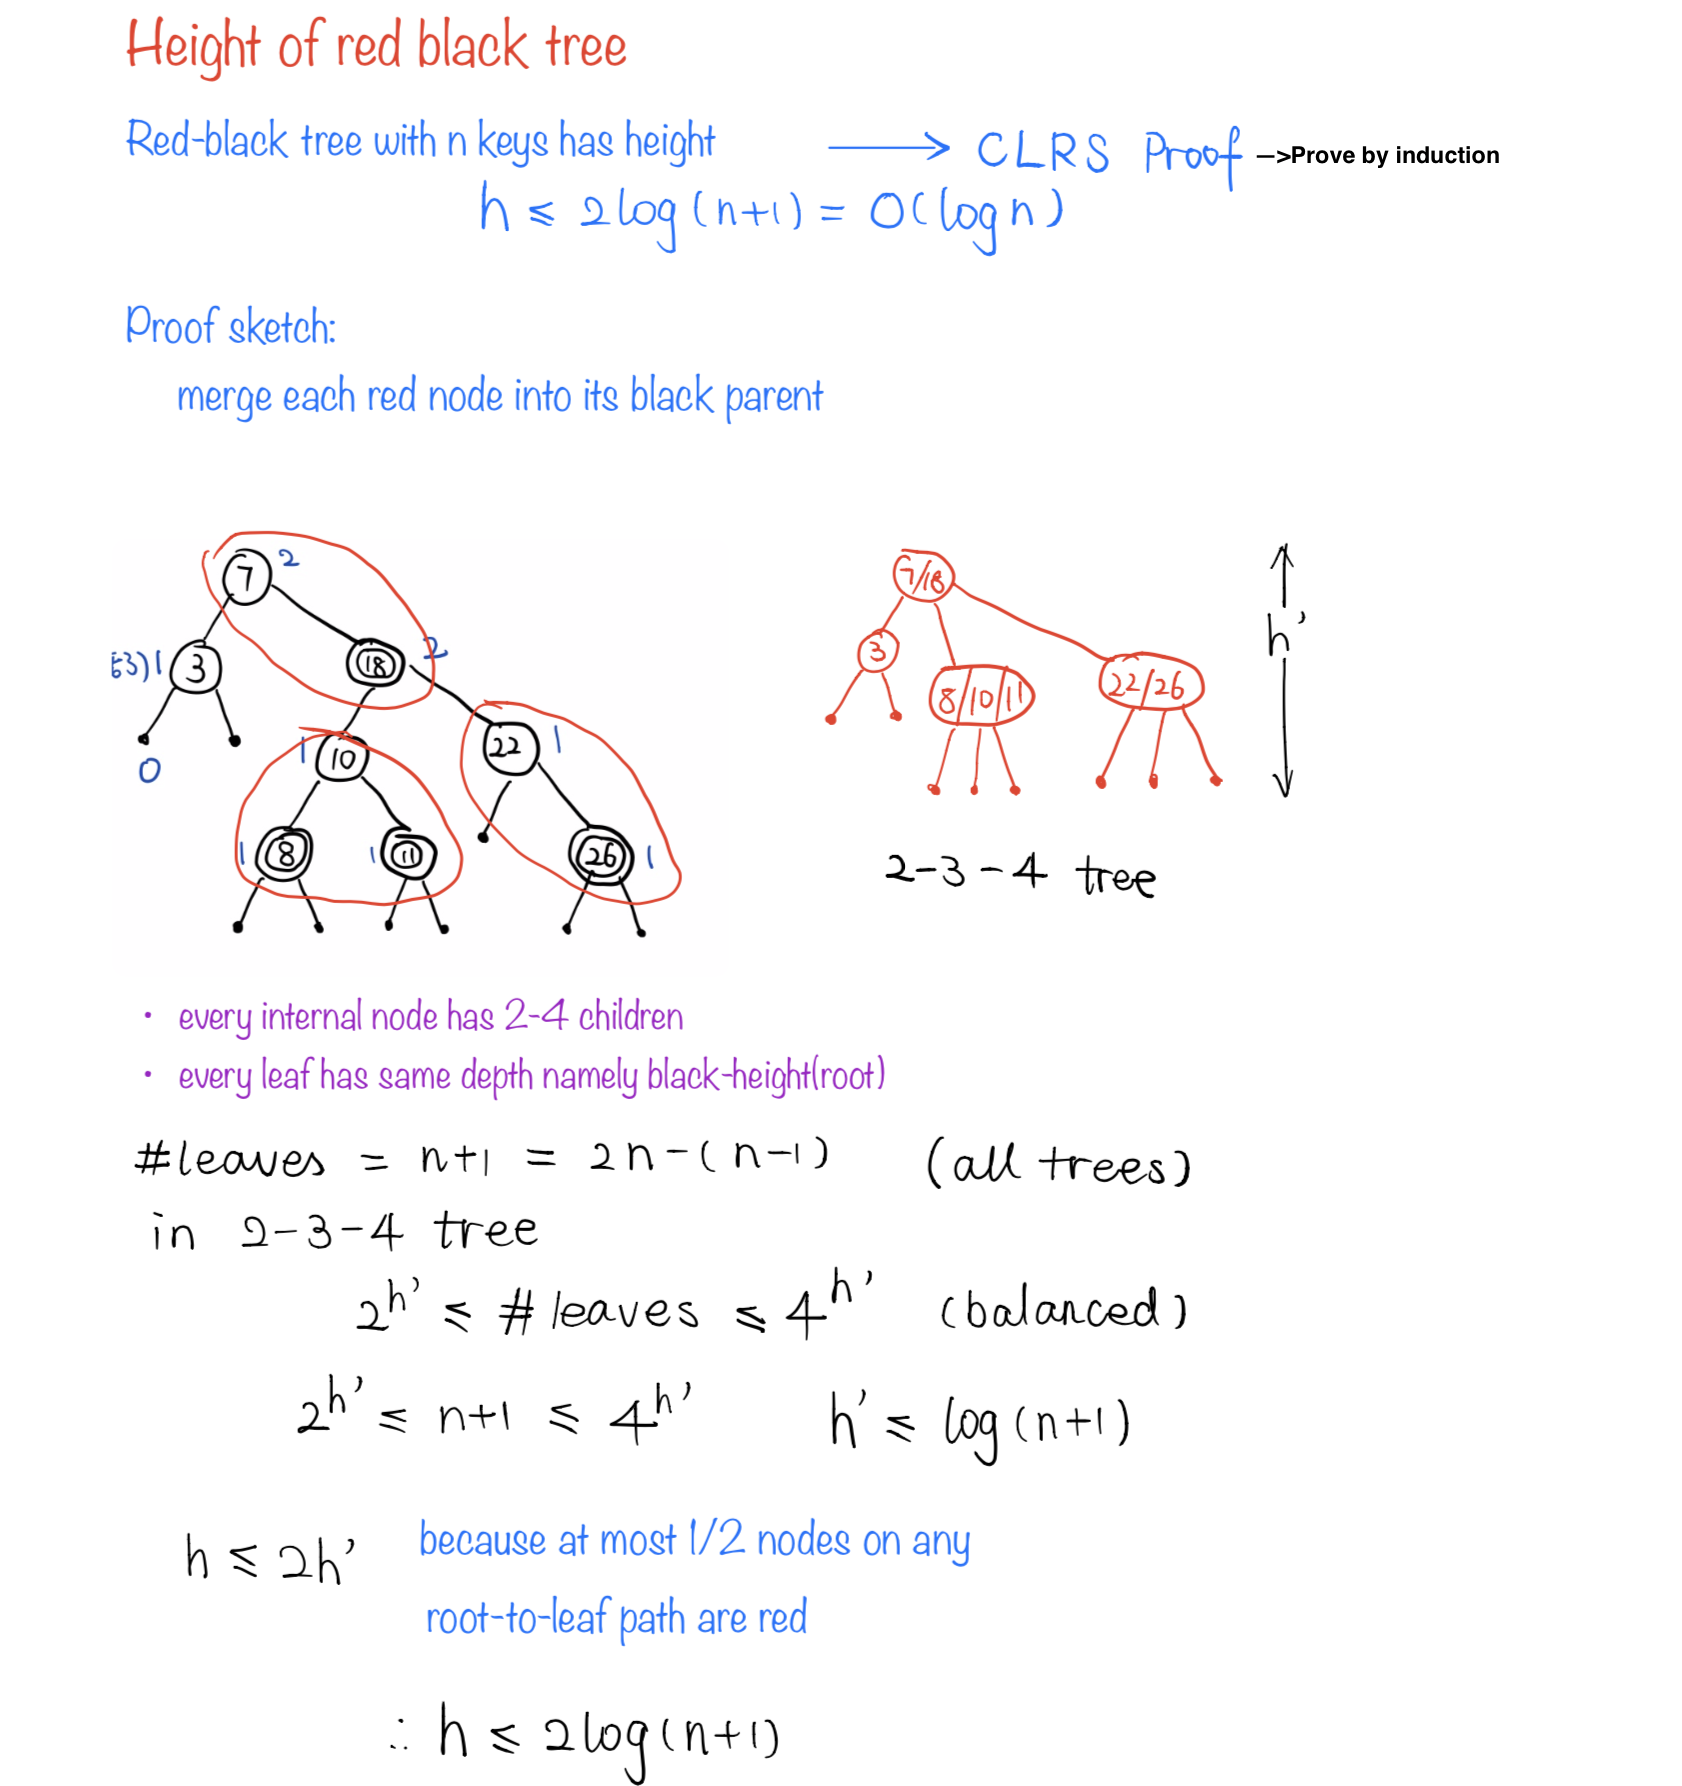 Height of red black tree
Red-black tree with n keys has height ⟶ CLRS Proof —>Prove by induction
h ≤ 2log(n+1) = O(logn)
Proof sketch:
merge each red node into its black parent
7 2
18 2
3 1
0
10 1
22 1
8 1
11 1
26 1
7/18
3
8/10/11
22/26
h'
2-3-4 tree
• every internal node has 2-4 children
• every leaf has same depth namely black-height(root)
#leaves = n+1 = 2n-(n-1) (all trees)
in 2-3-4 tree
2^h' ≤ # leaves ≤ 4^h' (balanced)
2^h' ≤ n+1 ≤ 4^h' h' ≤ log(n+1)
h ≤ 2h' because at most 1/2 nodes on any
root-to-leaf path are red
∴ h ≤ 2log(n+1)